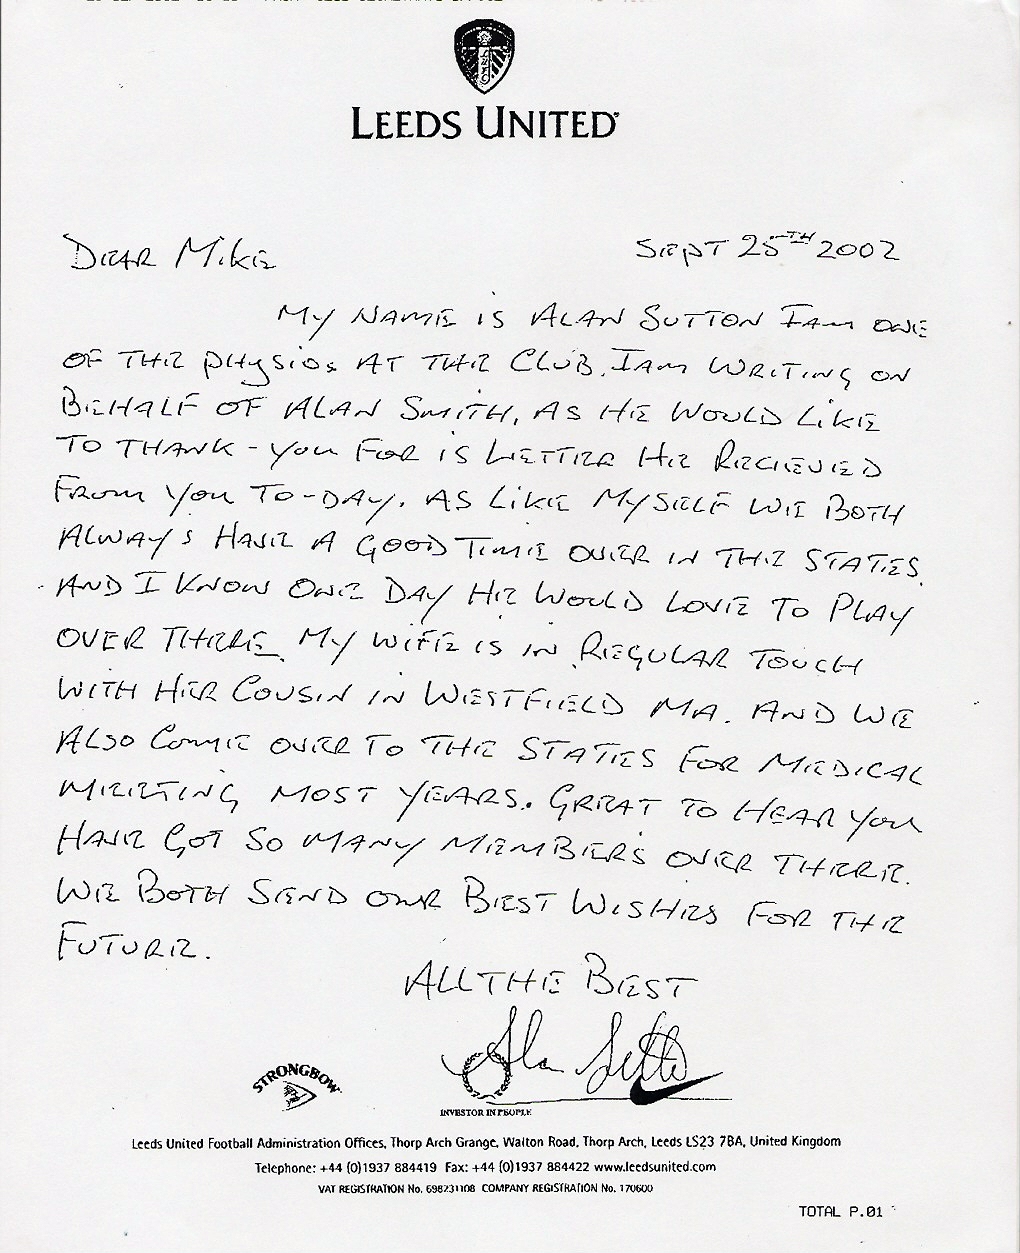 LEEDS UNITED
DEAR MIKE
SEPT 25TH 2002
MY NAME IS ALAN SUTTON I AM ONE
OF THE PHYSIOS AT THE CLUB. I AM WRITING ON
BEHALF OF ALAN SMITH, AS HE WOULD LIKE
TO THANK-YOU FOR IS LETTER HE RECIEVED
FROM YOU TO-DAY. AS LIKE MYSELF WE BOTH
ALWAYS HAVE A GOOD TIME OVER IN THE STATES.
AND I KNOW ONE DAY HE WOULD LOVE TO PLAY
OVER THERE. MY WIFE IS IN REGULAR TOUCH
WITH HER COUSIN IN WESTFIELD MA. AND WE
ALSO COME OVER TO THE STATES FOR MEDICAL
MEETING MOST YEARS. GREAT TO HEAR YOU
HAVE GOT SO MANY MEMBERS OVER THERE.
WE BOTH SEND OUR BEST WISHES FOR THE
FUTURE.
ALL THE BEST
Alan Sutton
STRONGBOW
INVESTOR IN PEOPLE
Leeds United Football Administration Offices, Thorp Arch Grange, Walton Road, Thorp Arch, Leeds LS23 7BA, United Kingdom
Telephone: +44 (0)1937 884419 Fax: +44 (0)1937 884422 www.leedsunited.com
VAT REGISTRATION No. 698231108 COMPANY REGISTRATION No. 170600
TOTAL P.01